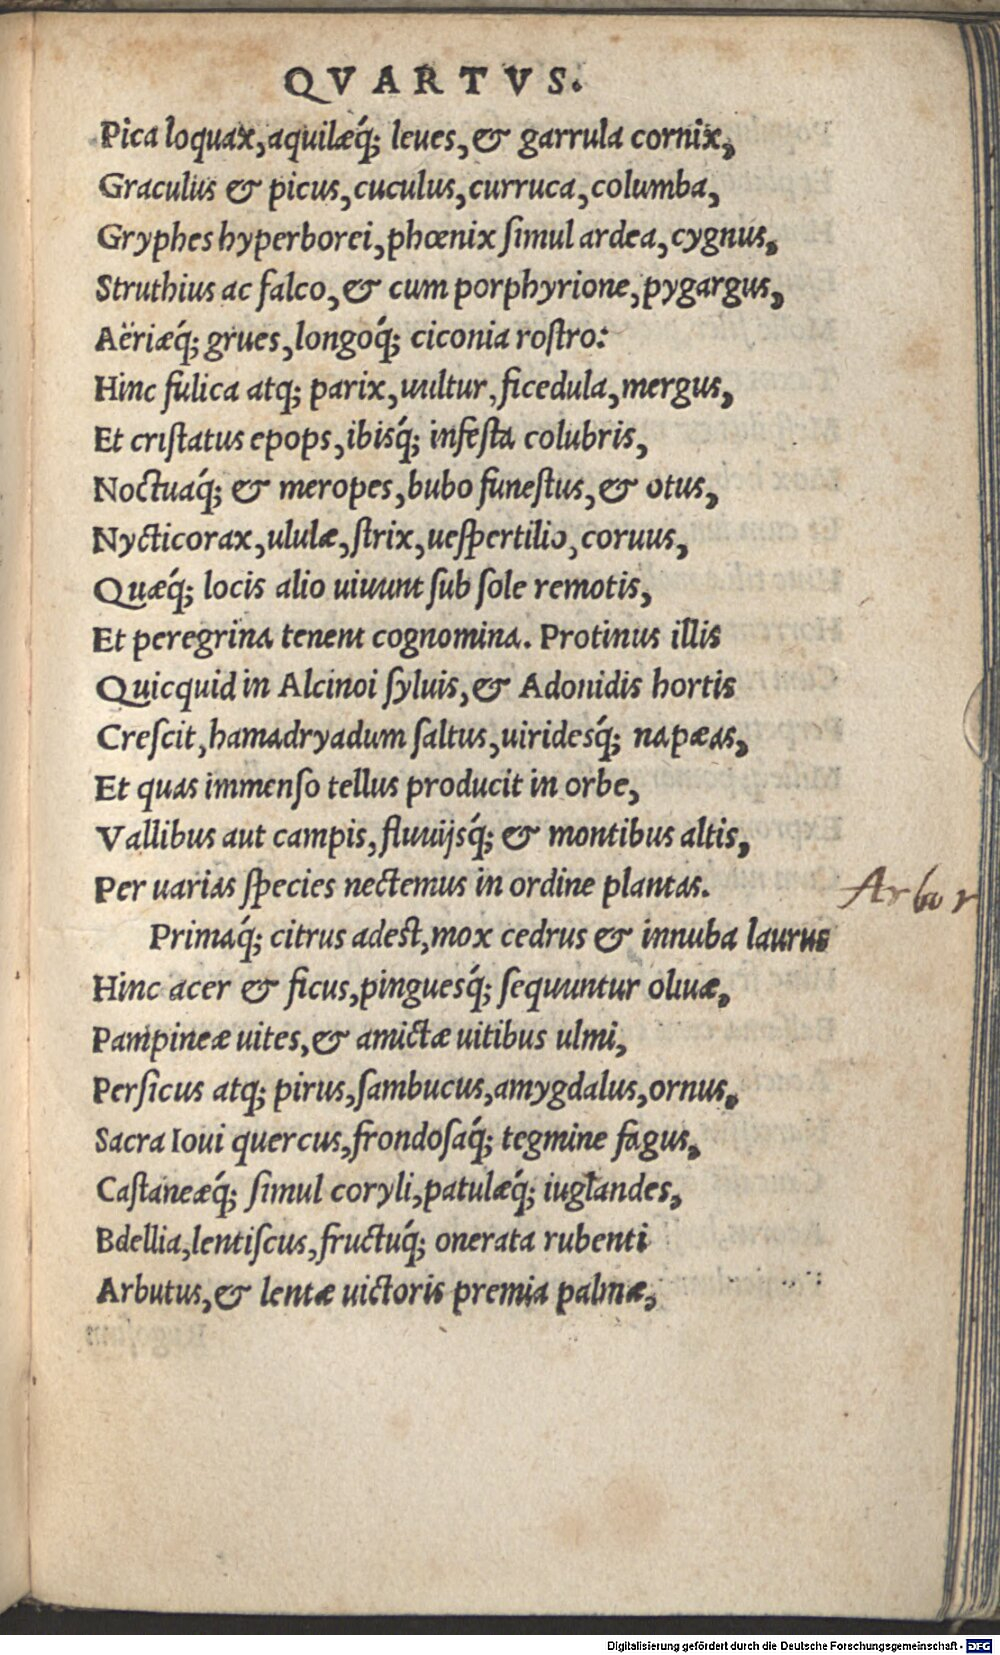 QVARTVS.
Pica loquax, aquilæq́; leues, & garrula cornix,
Graculus & picus, cuculus, curruca, columba,
Gryphes hyperborei, phœnix ſimul ardea, cygnus,
Struthius ac falco, & cum porphyrione, pygargus,
Aëriæq́; grues, longoq́; ciconia roſtro:
Hinc fulica atq; parix, uultur, ficedula, mergus,
Et criſtatus epops, ibisq́; infeſta colubris,
Noctuaq́; & meropes, bubo funeſtus, & otus,
Nycticorax, ululæ, ſtrix, ueſpertilio, coruus,
Quæq́; locis alio uiuunt ſub ſole remotis,
Et peregrina tenent cognomina. Protinus illis
Quicquid in Alcinoi ſyluis, & Adonidis hortis
Creſcit, hamadryadum ſaltus, uiridesq́; napæas,
Et quas immenſo tellus producit in orbe,
Vallibus aut campis, fluuijsq́; & montibus altis,
Per uarias ſpecies nectemus in ordine plantas.
Arbor
Primaq́; citrus adest, mox cedrus & innuba laurus
Hinc acer & ficus, pinguesq́; ſequuntur oliuæ,
Pampineæ uites, & amictæ uitibus ulmi,
Perſicus atq; pirus, ſambucus, amygdalus, ornus,
Sacra Ioui quercus, frondoſaq́; tegmine fagus,
Caſtaneæq́; ſimul coryli, patulæq́; iuglandes,
Bdellia, lentiſcus, fructuq́; onerata rubenti
Arbutus, & lentæ uictoris premia palmæ,
Digitalisierung gefördert durch die Deutsche Forschungsgemeinschaft - DFG